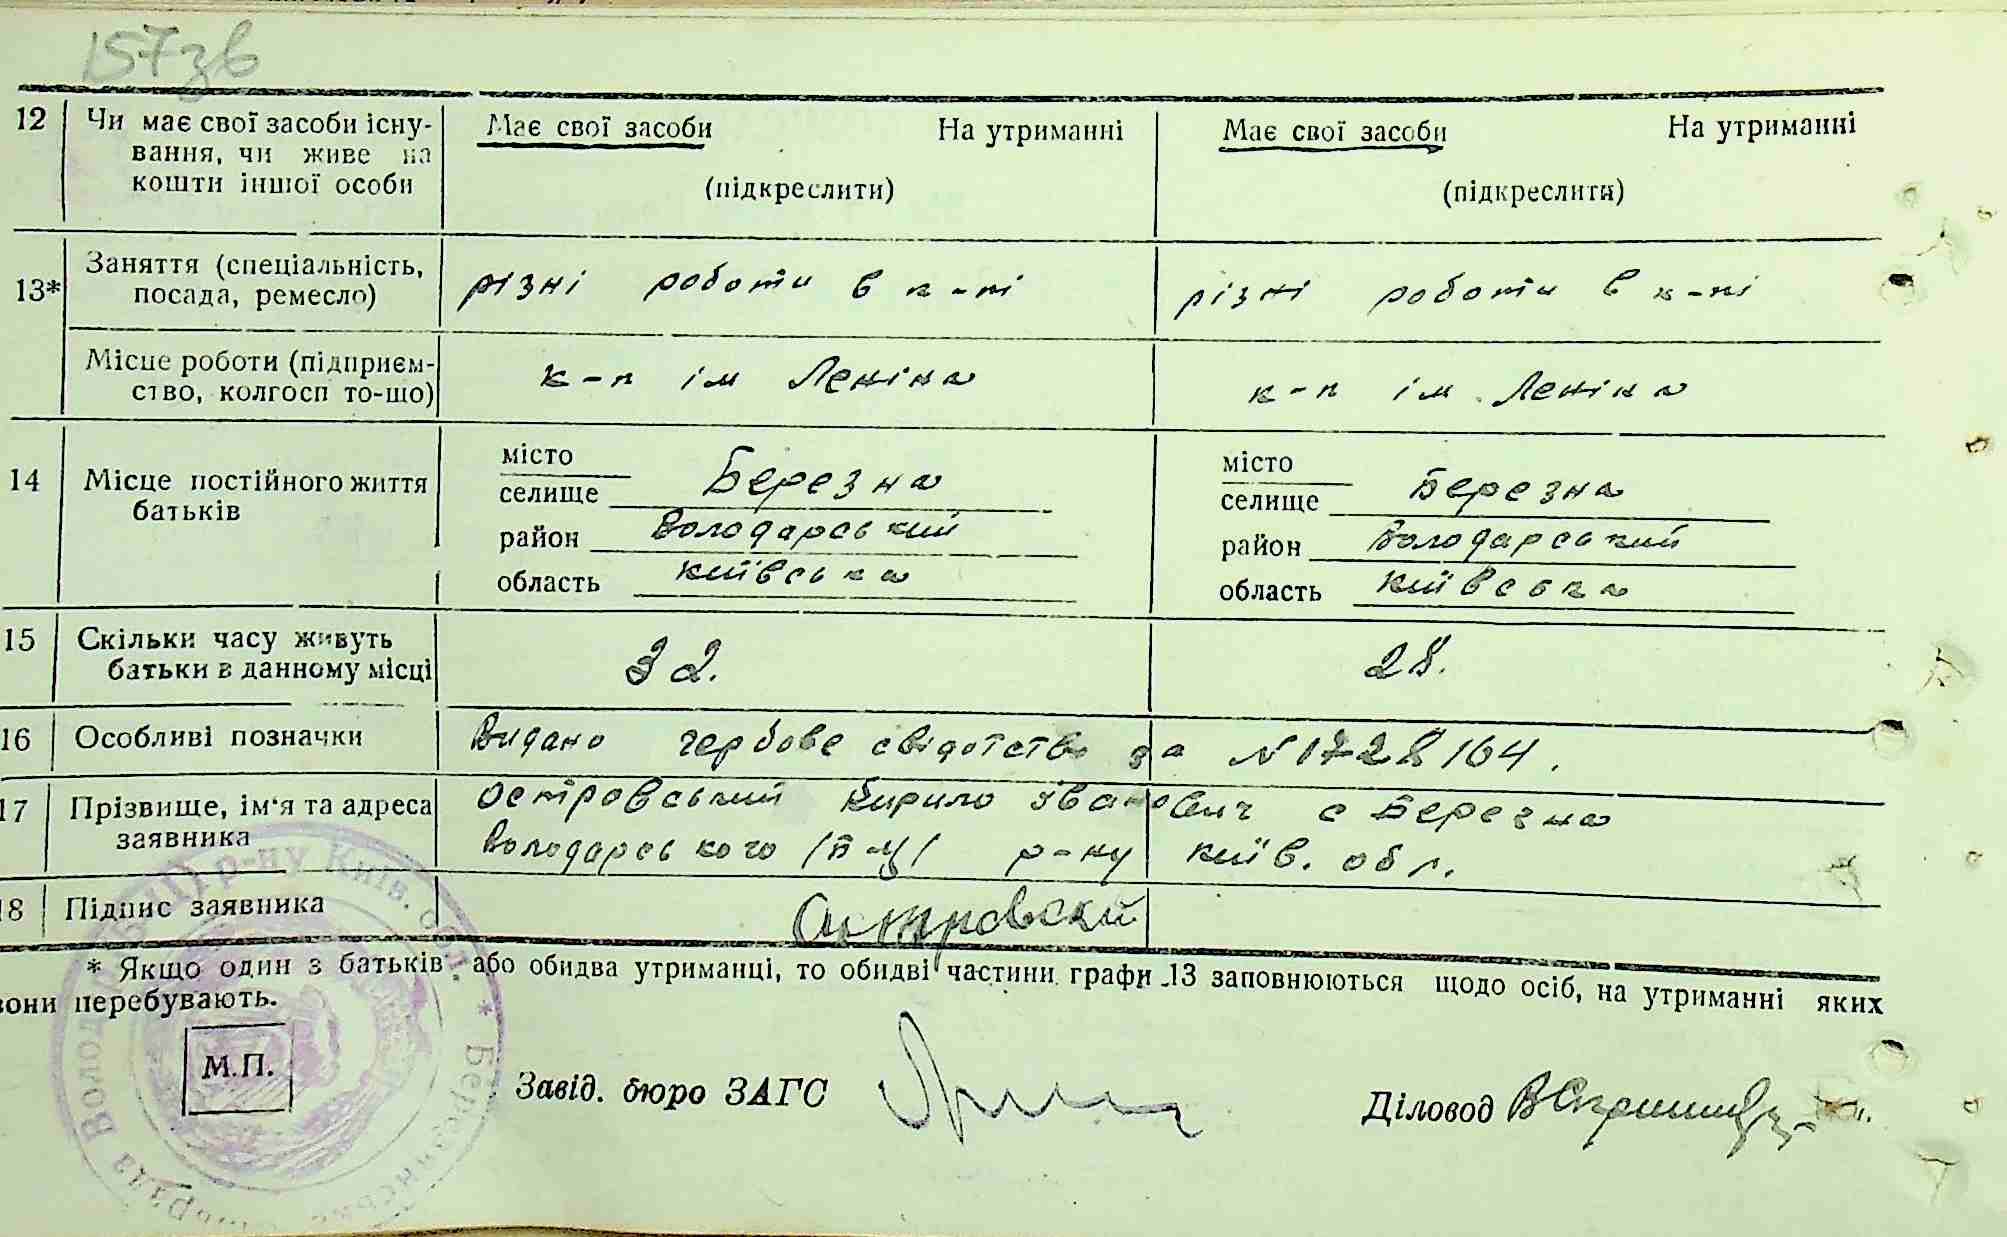 157зв
12 Чи має свої засоби існу-
вання, чи живе на
кошти іншої особи
Має свої засоби На утриманні
(підкреслити)
Має свої засоби На утриманні
(підкреслити)
13* Заняття (спеціальність,
посада, ремесло)
різні роботи в к-пі
різні роботи в к-пі
Місце роботи (підприєм-
ство, колгосп то-що)
к-п ім Леніна
к-п ім. Леніна
14 Місце постійного життя
батьків
місто
селище Березна
район Володарський
область київська
місто
селище Березна
район Володарський
область київська
15 Скільки часу живуть
батьки в данному місці
32.
28.
16 Особливі позначки
Видано гербове свідотство за N 1728164.
17 Прізвище, ім'я та адреса
заявника
Островський Кирило Іванович с Березна
Володарського /б-ц/ р-ну київ. обл.
18 Підпис заявника
Островский
* Якщо один з батьків або обидва утриманці, то обидві частини графи 13 заповнюються щодо осіб, на утриманні яких
вони перебувають.
М.П.
Завід. бюро ЗАГС
Діловод
р-ну Київ. обл. * Березнянська